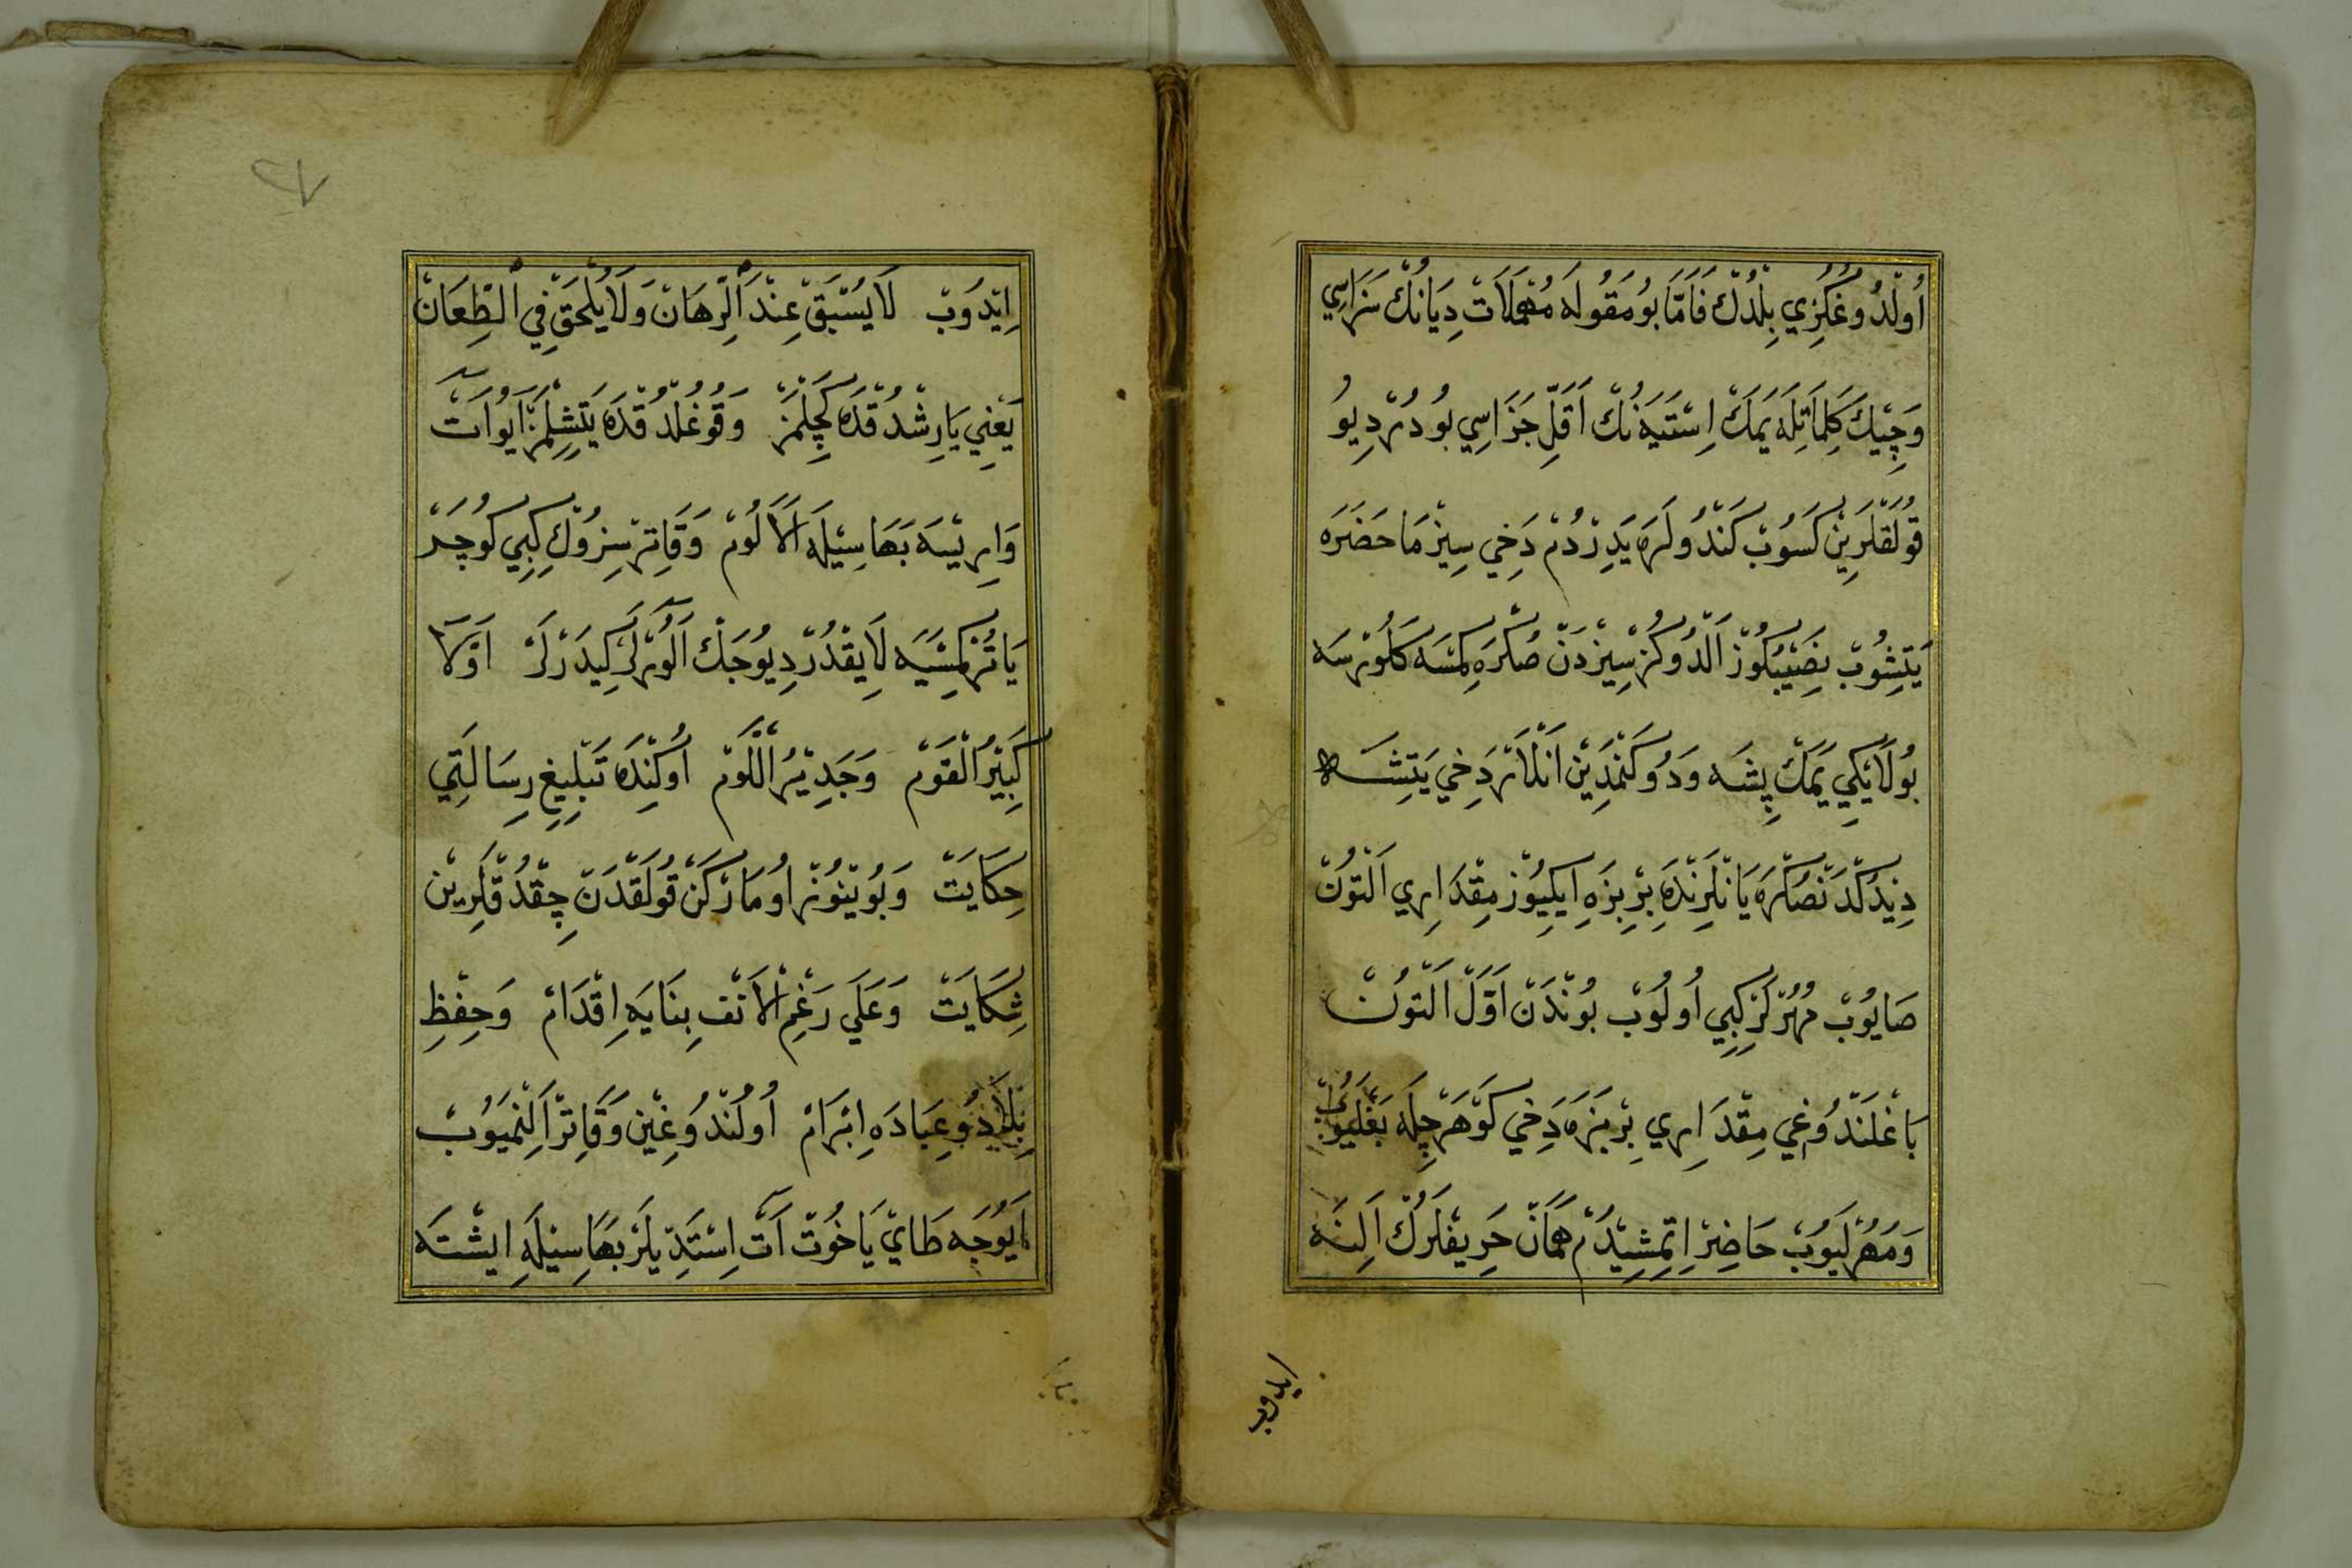 اُولْدُوغُكُزِي بِلْدُكْ فَاَمَّا بُومَقُولَه مُهْمَلَاتْ دِيَانُكْ سَزَاسِي
وَچِيْكَ كَلِمَاتِلَه يَمَكْ اِسْتَيَهنُكْ اَقَلِّ جَزَاسِي بُودُرْ دِيُو
قُولَقْلَرِينْ كَسُوبْ كَنْدُولَرَه يَدِرْدُمْ دَخِي سِيزْ مَاحَضَرَه
يَتِشُوبْ نَصِيْبُكُوزْ اَلْدُوكُزْ سِيزْدَنْ صُكْرَه كِمْسَه كَلُورْسَه
بُولَايْكِي يَمَكْ پِشَه وَدُوكَنْمَدِينْ اَنْلَارْ دَخِي يَتِشَه
دِيْدُكْدَنْصُكْرَه يَانْلَرِنْدَه بِرْ بِزَه اِيكِيُوزْ مِقْدَارِي اَلْتُونْ
صَايُوبْ مُهُرْلَرْكِبِي اُولُوبْ بُونْدَنْ اَوَّلْ اَلْتُونْ
بَاغْلَنْدُوغِي مِقْدَارِي بِرْ بَزَه دَخِي كَوْهَرْچِلَه بَغْلَيُوبْ
وَمُهُرْلَيُوبْ حَاضِرْ اِتْمِشِيْدُمْ هَمَانْ حَرِيفْلَرُكْ اَلِنَه
اِيدُوبْ
اِيْدُوبْ لَايُسْبَقُ عِنْدَ الْرِّهَانْ وَلَايُلْحَقُ فِي الْطِّعَانْ
يَعْنِي يَارِشْدُقْدَه كَچِلْمَزْ وَقُوغُلْدُقْدَه يَتِشِلْمَزْ اَيُو آتْ
وَارِيْسَه بَهَاسِيْلَه اَلَالُومْ وَقَاتِرْسِزُوْكِ كِبِي كُوجَدَرْ
يَاتُرْ كِمْسَيَه لَايِقْدُرْ دِيُوجَكْ اَلُورْلَرْ كِيدَرْلَرْ اَوَّلَا
كَبِيْرُ الْقَوْمْ وَجَدِيْرُ اللَّوْمْ اُوكِنْدَه تَبْلِيغِ رِسَالَتِي
حِكَايَتْ وَبُوْيْنُوزْ اُومَارْكَنْ قُولَقْدَنْ چِقْدُقْلَرِينْ
شِكَايَتْ وَعَلَي رَغْمِ الْاَنْفِ بِنَايَه اِقْدَامْ وَحِفْظِ
بِلَادُ وَعِبَادَه اِبْرَامْ اُولُنْدُوغِينْ وَقَاتِرْ اَلِنْمَيُوبْ
اَيُوجَه طَايْ يَاخُوتْ آتْ اِسْتَدِيلَرْ بَهَاسِيْلَه اِيشْتَه